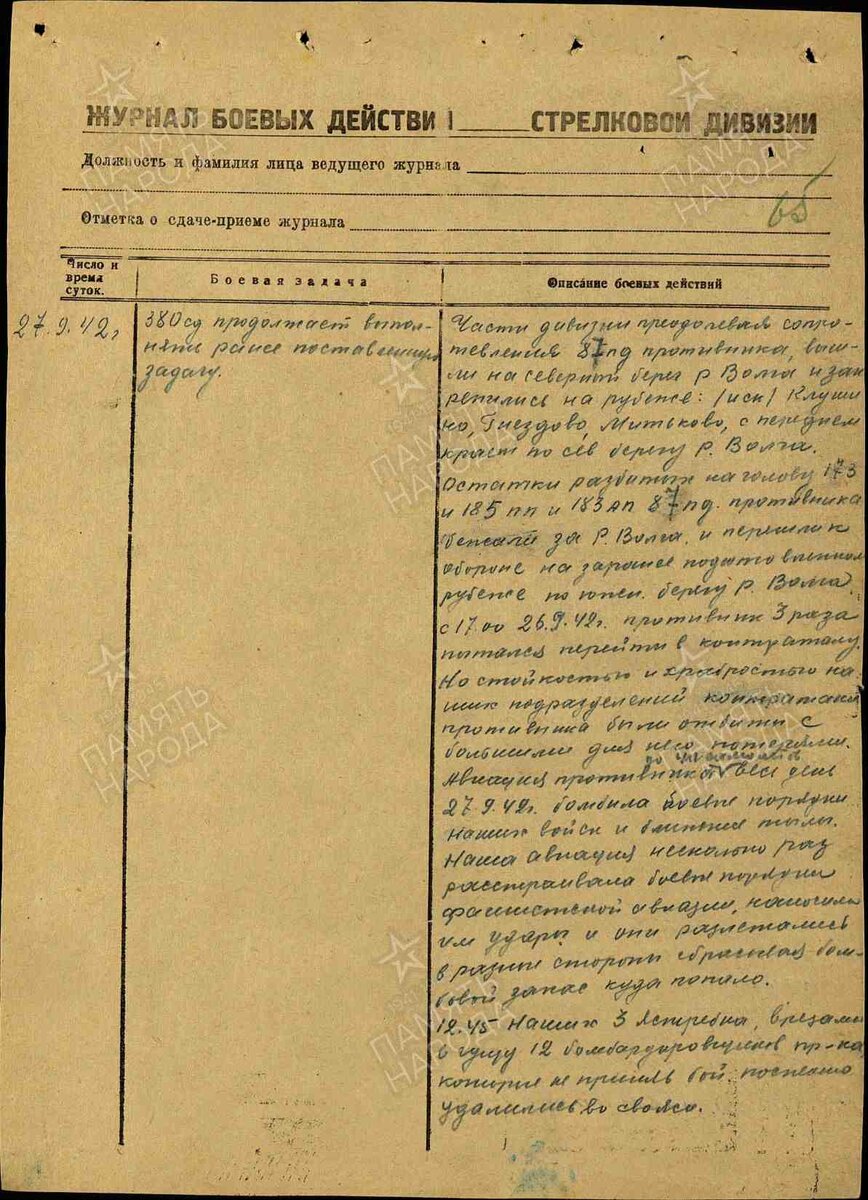 ЖУРНАЛ БОЕВЫХ ДЕЙСТВИ СТРЕЛКОВОЙ ДИВИЗИИ
Должность и фамилия лица ведущего журнала
65
Отметка о сдаче-приеме журнала
Число и время суток.
Боевая задача
Описание боевых действий
27.9.42г
380сд продолжает выпол-
нять ранее поставленную
задачу.
Части дивизии преодолевая сопро-
тевления 87пд противника, выш-
ли на северный берег р Волга и зак
репились на рубеже: /иск/ Клуши
но, Гнездово, Митьково, с передним
краем по сев берегу р. Волга.
Остатки разбитых на голову 173
и 185 пп и 183 ап 87пд. противника
бежали за р. Волга, и перешли к
обороне на заранее подготовленном
рубеже по южн. берегу р. Волга.
с 17 до 26.9.42г. противник 3 раза
пытался перейти в контратаку.
Но стойкостью и храбростью на-
ших подразделений контратаки
противника были отбиты с
большими для него потерями.
Авиация противника до самолетов весь день
27.9.42г. бомбила боевые порядки
наших войск и ближние тылы.
Наша авиация несколько раз
расстраивала боевые порядки
фашистской авиации, наносила
им удары и они разлетались
в разные стороны сбрасывая бом-
бовой запас куда попало.
12.45 Наших 3 Ястребка, врезались
в гущу 12 бомбардировщиков пр-ка
которые не приняв бой поспешно
удалились во свояси.
ПАМЯТЬ НАРОДА
ПАМЯТЬ НАРОДА
ПАМЯТЬ НАРОДА
ПАМЯТЬ НАРОДА
ПАМЯТЬ НАРОДА
ПАМЯТЬ НАРОДА